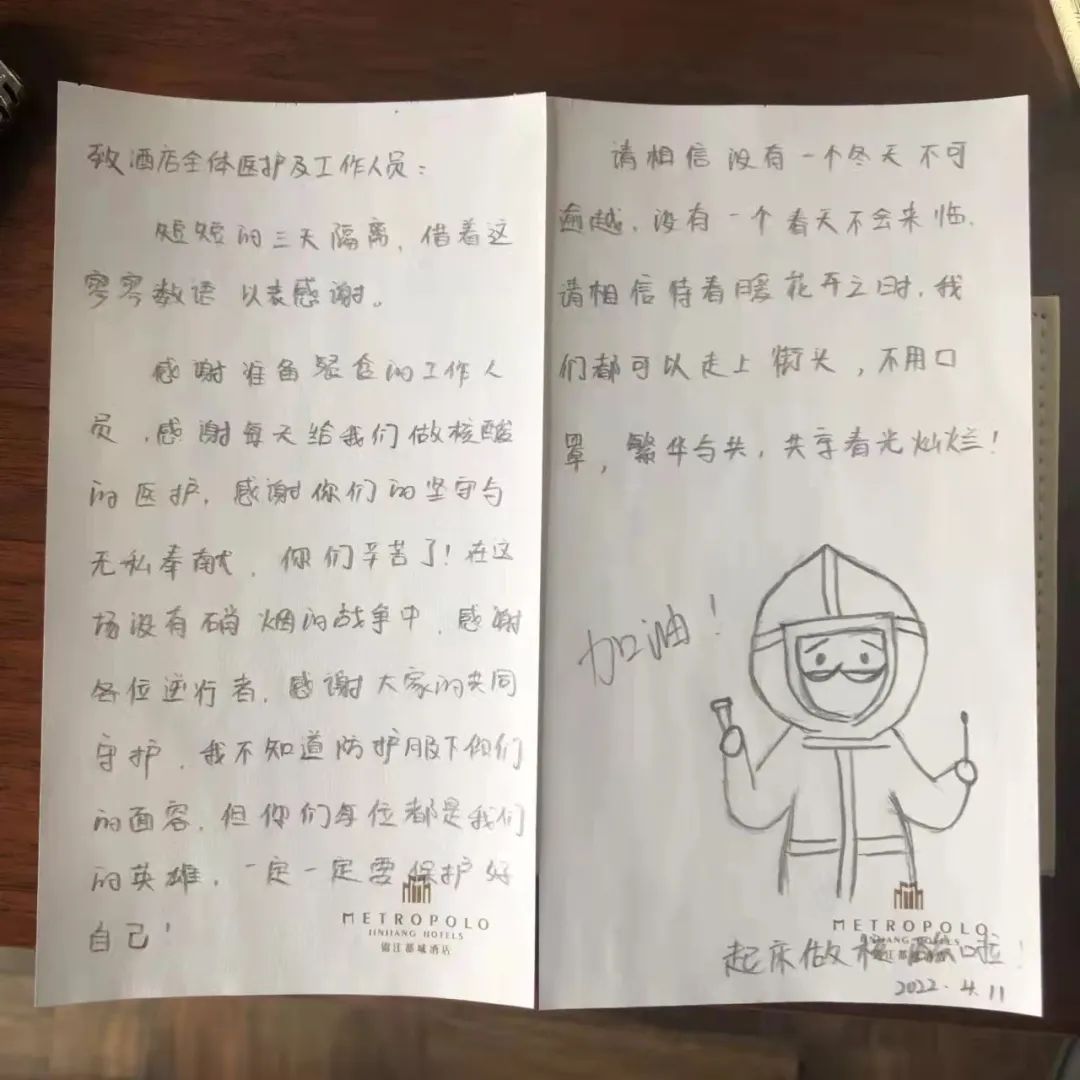 致酒店全体医护及工作人员：
短短的三天隔离，借着这
寥寥数语 以表感谢。
感谢准备餐食的工作人
员，感谢每天给我们做核酸
的医护，感谢你们的坚守与
无私奉献，你们辛苦了！在这
场没有硝烟的战争中，感谢
各位逆行者，感谢大家的共同
守护，我不知道防护服下你们
的面容，但你们每位都是我们
的英雄，一定一定要保护好
自己！
METROPOLO
JINJIANG HOTELS
锦江都城酒店
请相信 没有一个冬天 不可
逾越，没有一个春天不会来临，
请相信待春暖花开之时，我
们都可以走上 街头，不用口
罩，繁华与共，共享春光灿烂！
加油！
METROPOLO
JINJIANG HOTELS
锦江都城酒店
起床做核酸啦！
2022.4.11